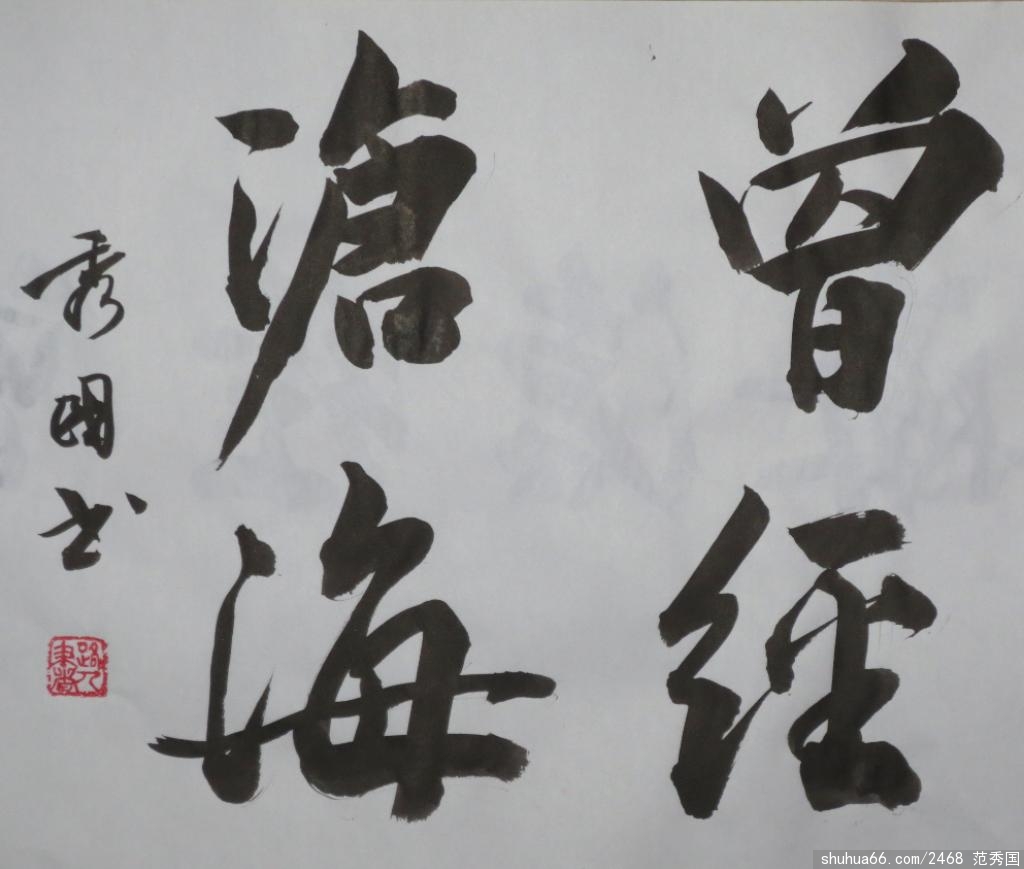 曾經
滄海
秀国书
shuhua66.com/2468 范秀国